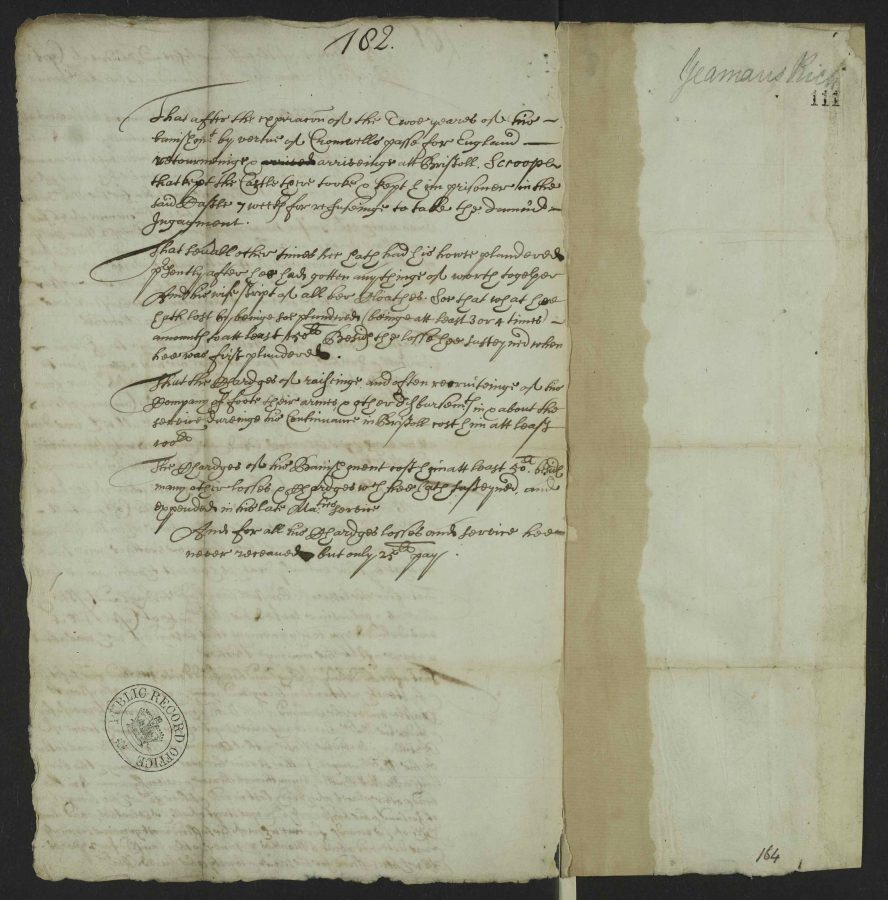 182.
Yeamans Rich
111
That after the expiracon of the Twoe yeares of his
banishmt by vertue of Cromwells passe for England
retourneinge & arriveinge att Bristoll. Scroope
that kept the Castle there tooke & kept him prisoner in the
said Castle 7 weeks for refuseinge to take the damnd
Ingagment.
That sevall other times hee hath had his howse plundered
psently after hee hads gotten anythinge of worth together
And his wife stript of all her Cloathes. Soe that what hee
hath lost by beinge soe plundered (beinge att least 3 or 4 times)
amounts to att least 150li Besids the losse hee susteyned when
hee was first plundered.
That the Chardges of raiseinge and often recruiteinge of his
Company of foote their armes & other disbursemts in & about the
service dureinge his Continuance in Bristoll cost him att least
100li
The Chardges of his Banishment cost him att least 50li. besids
many other losses & Chardges wch hee hath susteyned and
expended in his late Maties service
And for all his Chardges losses and service hee
never receaved but only 25li pay.
PUBLIC RECORD OFFICE
164